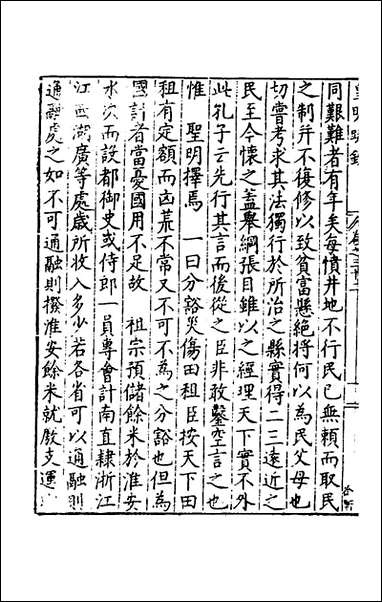 同艱難者有年矣每憤井地不行民已無頼而取民
之制并不復修以致貧富懸絕將何以為民父母也
切嘗考求其法獨行於所治之縣實得二三遠近之
民至今懷之盖舉綱張目雖以之經理天下實不外
此孔子云先行其言而後從之臣非敢鑿空言之也
惟　聖明擇焉　一曰分豁災傷田租臣按天下田
租有定額而凶荒不常又不可不為之分豁也但為
國計者當憂國用不足故　祖宗預儲餘米於淮安
水次而設都御史或侍郎一員專會計南直隷浙江
江西湖廣等處歳所收入多少若各省可以通融則
通融處之如不可通融則撥淮安餘米就厫支運